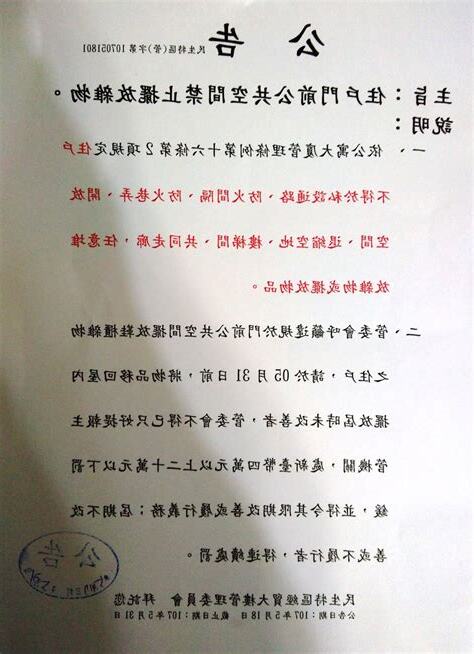 公告
民生特區(管)字第 107051801
主旨：住戶門前公共空間禁止擺放雜物。
說明：
一、依公寓大廈管理條例第十六條第2項規定住戶
不得於私設通路、防火間隔、防火巷弄、開放
空間、退縮空地、樓梯間、共同走廊，任意堆
放雜物或擺放物品。
二、管委會呼籲違規於門前公共空間擺放鞋櫃雜物
之住戶，請於 05 月 31 日前，將物品移回屋內
擺放屆時未改善者，管委會不得已只好提報主
管機關，處新臺幣四萬元以上二十萬元以下罰
鍰，並得令其限期改善或履行義務；屆期不改
善或不履行者，得連續處罰。
公告
民生特區經貿大樓管理委員會 拜託您
公告日期：107 年 5 月 18 日 截止日期：107 年 5 月 31 日